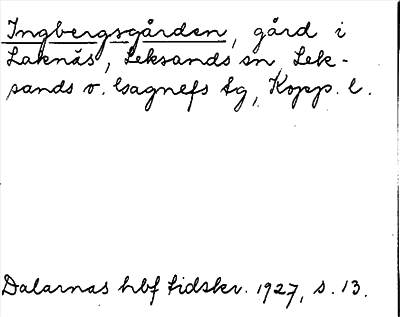 Ingbergsgården, gård i
Laknäs, Leksands sn, Lek-
sands o. Gagnefs tg, Kopp. l.
Dalarnas hbf tidskr. 1927, s. 13.